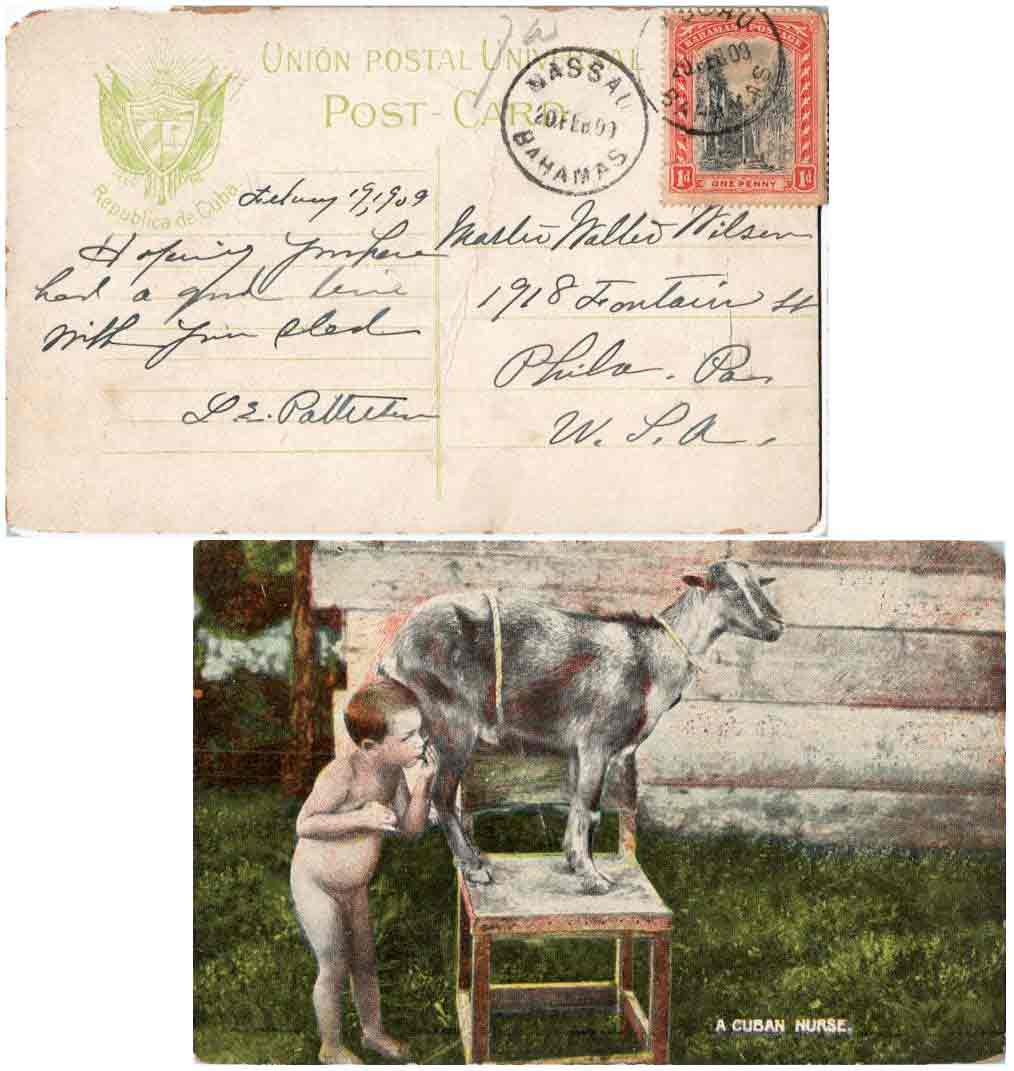 UNIÓN POSTAL UNIVERSAL
POST-CARD
Republica de Cuba
NASSAU
20.FEB 09
BAHAMAS
NASSAU
20.FEB 09
BAHAMAS
BAHAMAS POSTAGE
1d ONE PENNY 1d
February 19, 1909
Hoping you have
had a good time
with your sled
L. E. Patterson
Master Walter Wilson
1918 Fontain St
Phila. Pa.
U. S. A.
A CUBAN NURSE.